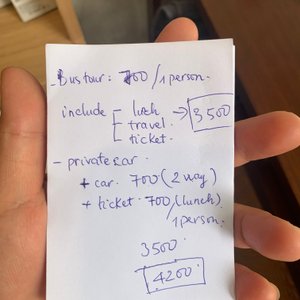 - Bus tour: 700/1 person.
include lunch → 3500
travel.
ticket.
- private car.
+ car. 700 (2 way)
+ ticket. 700/(lunch)
1 person.
3500.
4200.